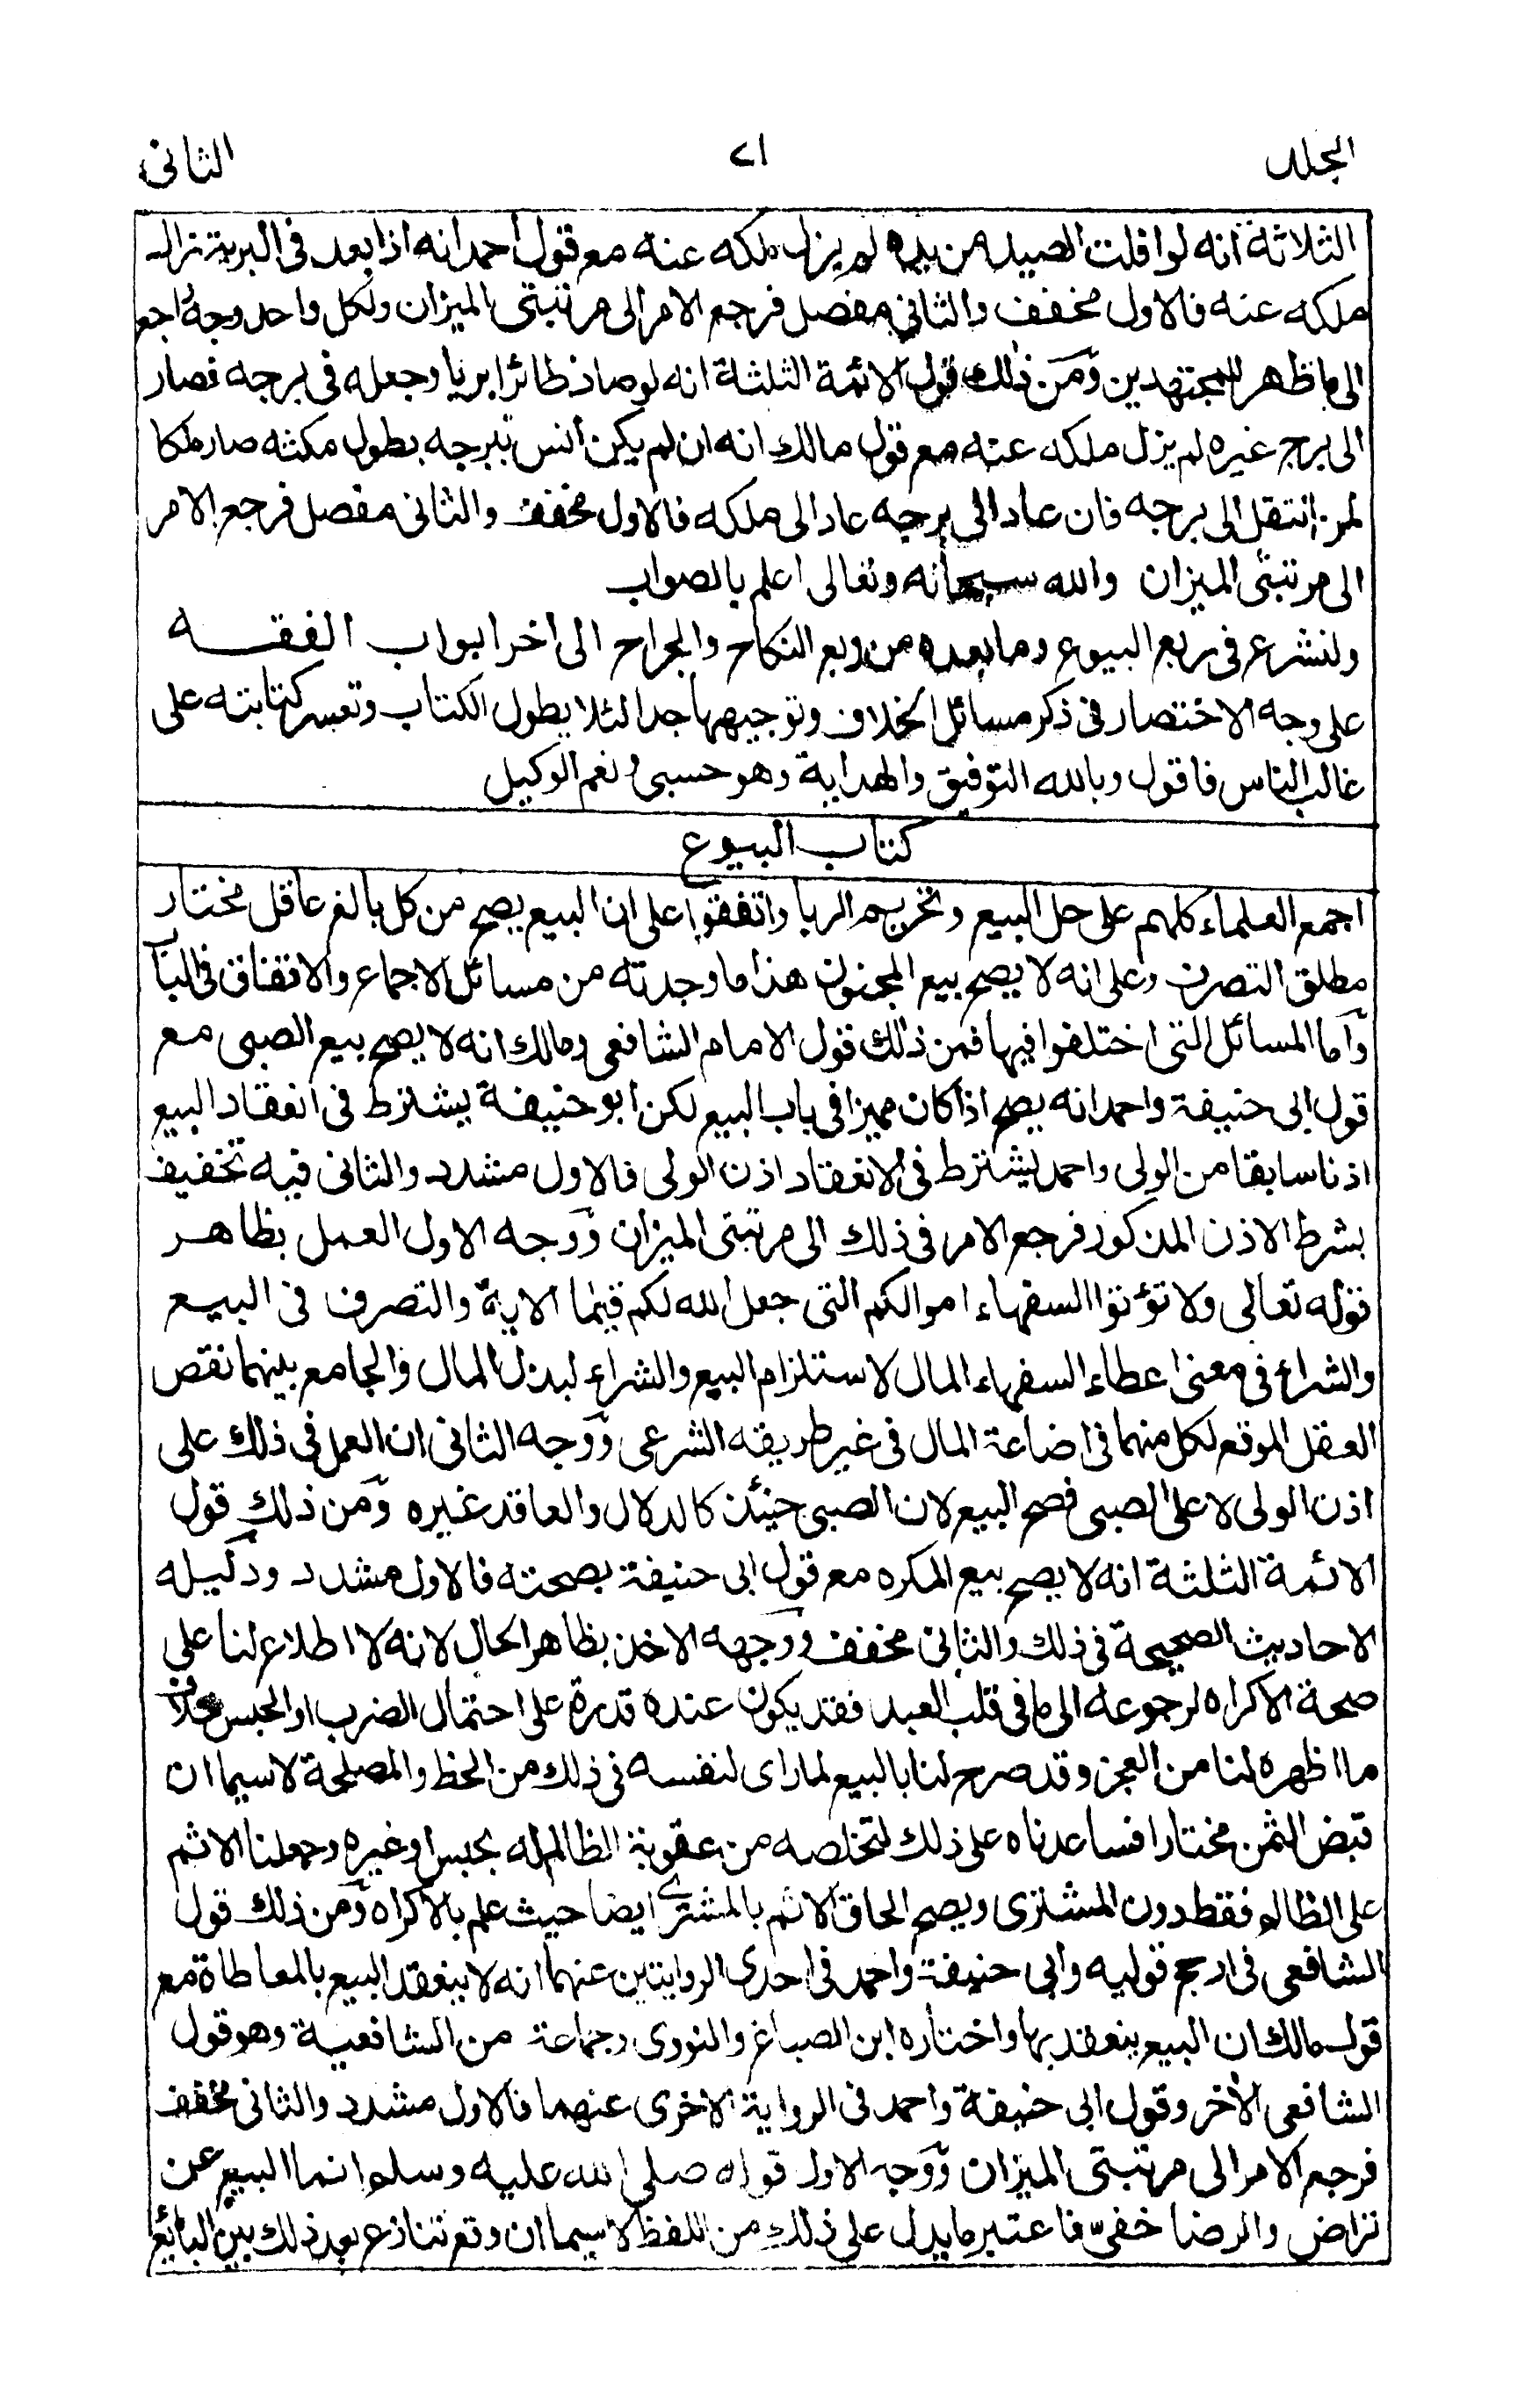 المجلد ٧١ الثانى
الثلاثة انه لو افلت الصيد من يده لم يزل ملكه عنه مع قول احمد انه اذا بعد فى البرية زال
ملكه عنه فالاول مخفف والثانى مفصل فرجع الامر الى مرتبتى الميزان ولكل واحد وجه راجع
الى ما ظهر للمجتهدين ومن ذلك قول الائمة الثلثة انه لو صاد طائرا بريا وجعله فى برجه فصار
الى برج غيره لم يزل ملكه عنه مع قول مالك انه ان لم يكن انس ببرجه بطول مكثه صار ملكا
لمن انتقل الى برجه فان عاد الى برجه عاد الى ملكه فالاول مخفف والثانى مفصل فرجع الامر
الى مرتبتى الميزان والله سبحانه وتعالى اعلم بالصواب
ولنشرع فى ربع البيوع وما بعده من ربع النكاح والجراح الى اخر ابواب الفقه
على وجه الاختصار فى ذكر مسائل الخلاف وتوجيهها جدا لئلا يطول الكتاب وتعسر كتابته على
غالب الناس فاقول وبالله التوفيق والهداية وهو حسبى ونعم الوكيل
كتاب البيوع
اجمع العلماء كلهم على حل البيع وتحريم الربا واتفقوا على ان البيع يصح من كل بالغ عاقل مختار
مطلق التصرف وعلى انه لا يصح بيع المجنون هذا ما وجدته من مسائل الاجماع والاتفاق فى الباب
واما المسائل التى اختلفوا فيها فمن ذلك قول الامام الشافعى ومالك انه لا يصح بيع الصبى مع
قول ابى حنيفة واحمد انه يصح اذا كان مميزا فى باب البيع لكن ابو حنيفة يشترط فى انعقاد البيع
اذنا سابقا من الولى واحمد يشترط فى الانعقاد اذن الولى فالاول مشدد والثانى فيه تخفيف
بشرط الاذن المذكور فرجع الامر فى ذلك الى مرتبتى الميزان ووجه الاول العمل بظاهر
قوله تعالى ولا تؤتوا السفهاء اموالكم التى جعل الله لكم قيٰما الاية والتصرف فى البيع
والشراء فى معنى اعطاء السفهاء المال لاستلزام البيع والشراء لبذل المال والجامع بينهما نقص
العقل الموقع لكل منهما فى اضاعة المال فى غير طريقه الشرعى ووجه الثانى ان العمل فى ذلك على
اذن الولى لا على الصبى فصح البيع لان الصبى حينئذ كالدلال والعاقد غيره ومن ذلك قول
الائمة الثلثة انه لا يصح بيع المكره مع قول ابى حنيفة بصحته فالاول مشدد ودليله
الاحاديث الصحيحة فى ذلك والثانى مخفف ووجهه الاخذ بظاهر الحال لانه لا اطلاع لنا على
صحة الاكراه لرجوعه الى ما فى قلب العبد فقد يكون عنده قدرة على احتمال الضرب او الحبس بخلاف
ما اظهره لنا من العجز وقد صرح لنا بالبيع لما راى لنفسه فى ذلك من الحظ والمصلحة لا سيما ان
قبض الثمن مختارا فساعدناه على ذلك لتخلصه من عقوبة الظالم له بحبس او غيره وجعلنا الاثم
على الظالم فقط دون المشترى ويصح الحاق الاثم بالمشترى ايضا حيث علم بالاكراه ومن ذلك قول
الشافعى فى ارجح قوليه وابى حنيفة واحمد فى احدى الروايتين عنهما انه لا ينعقد البيع بالمعاطاة مع
قول مالك ان البيع ينعقد بها واختاره ابن الصباغ والنووى وجماعة من الشافعية وهو قول
الشافعى الأخر وقول ابى حنيفة واحمد فى الرواية الاخرى عنهما فالاول مشدد والثانى مخفف
فرجع الامر الى مرتبتى الميزان ووجه الاول قوله صلى الله عليه وسلم انما البيع عن
تراض والرضا خفىّ فاعتبر ما يدل على ذلك من اللفظ لا سيما ان وقع تنازع بعد ذلك بين البائع